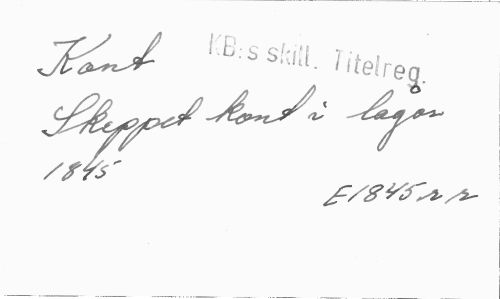 Kant KB:s skill. Titelreg.
Skeppet kant i lagår
1845
E1845 r r